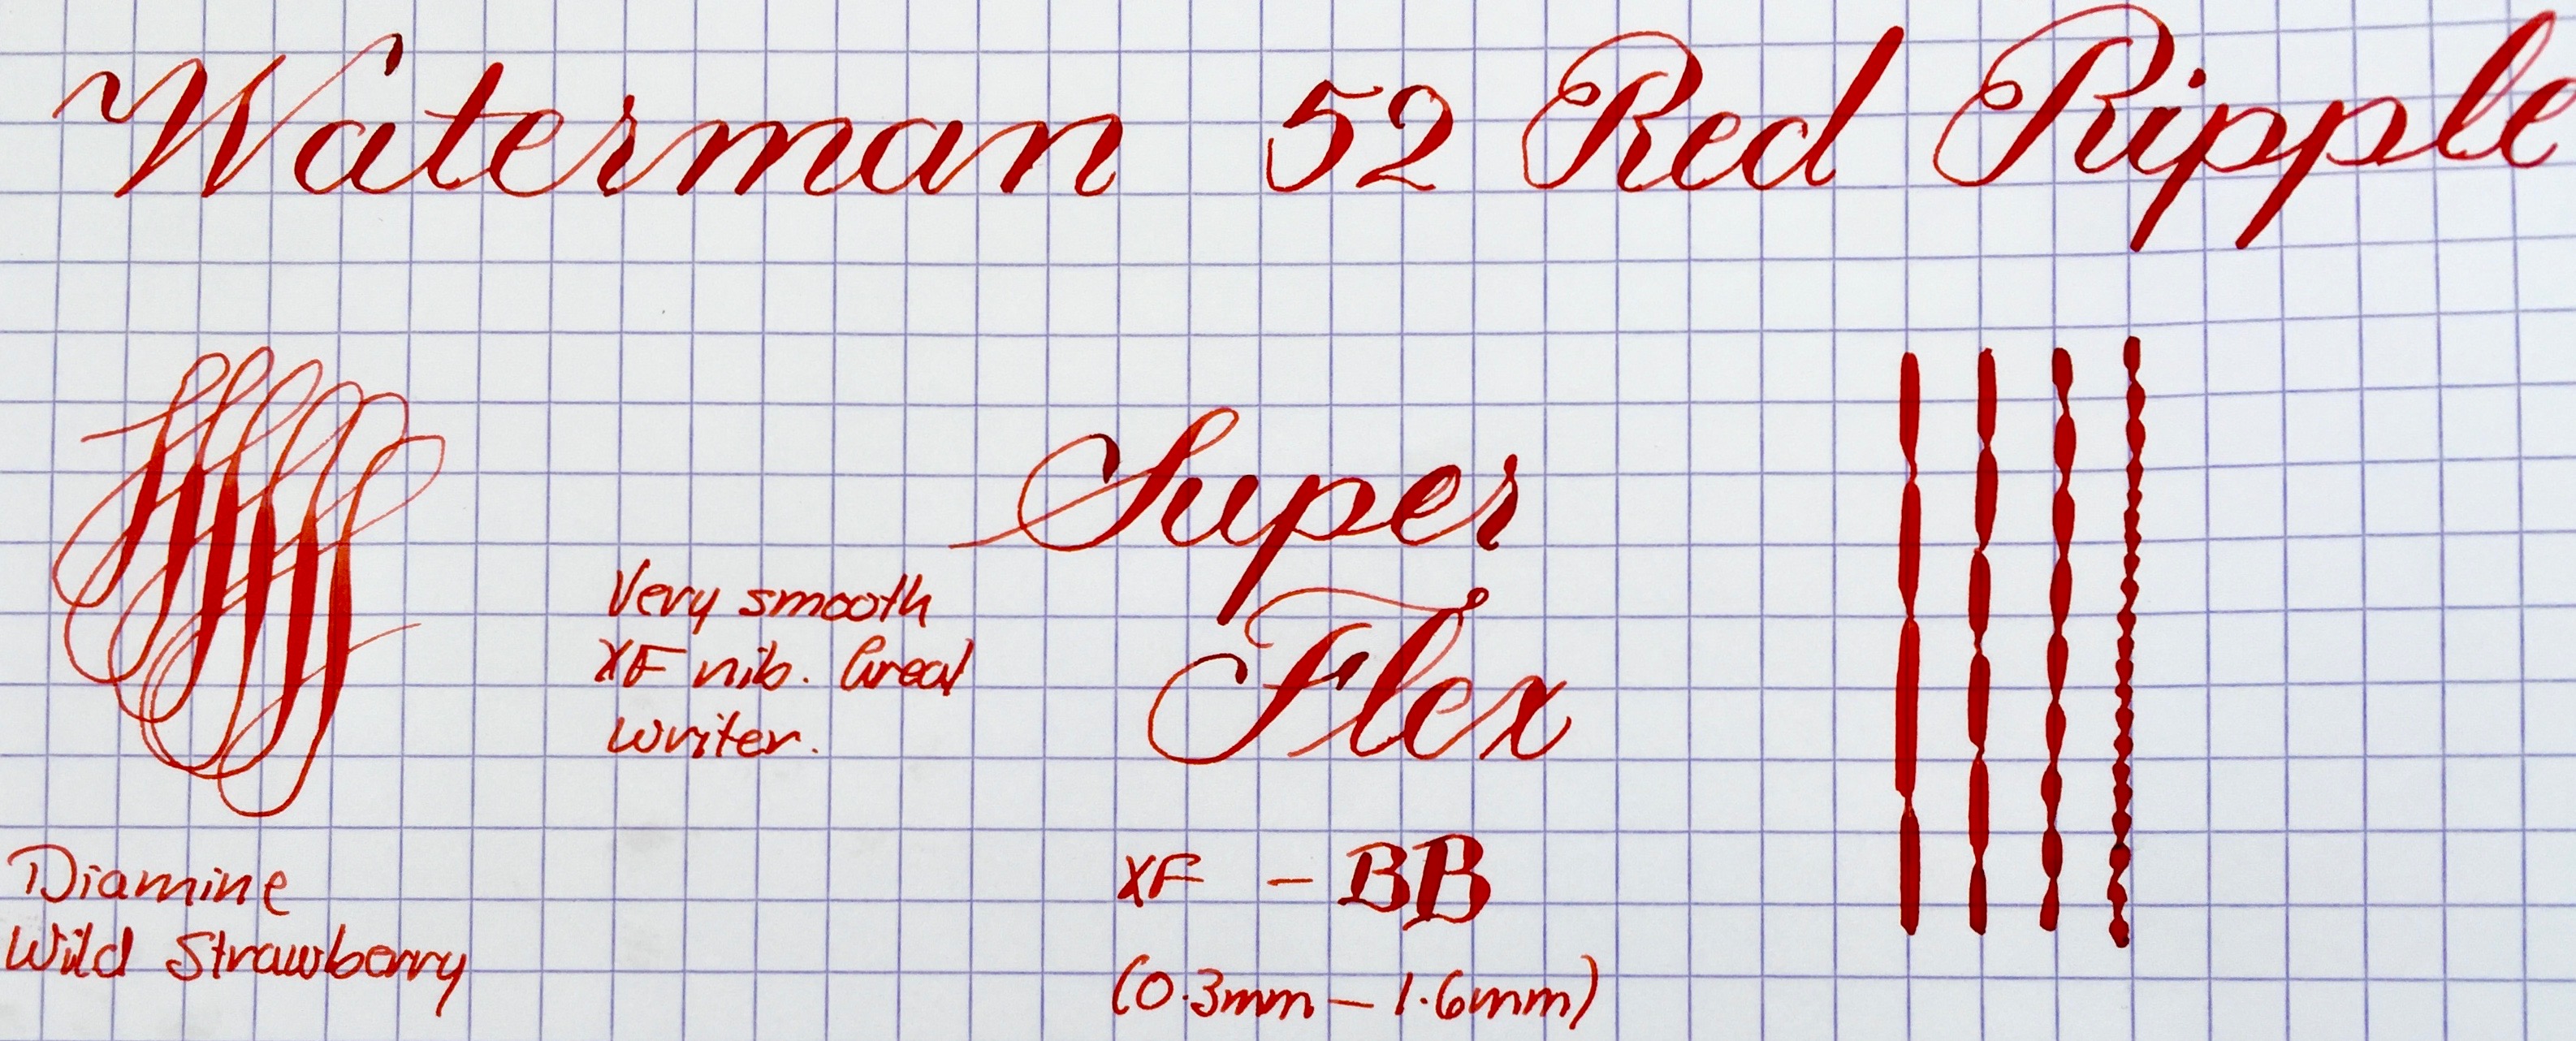 Waterman 52 Red Ripple
Super
Flex
Very smooth
XF nib. Great
writer.
XF - BB
(0.3mm - 1.6mm)
Diamine
Wild Strawberry